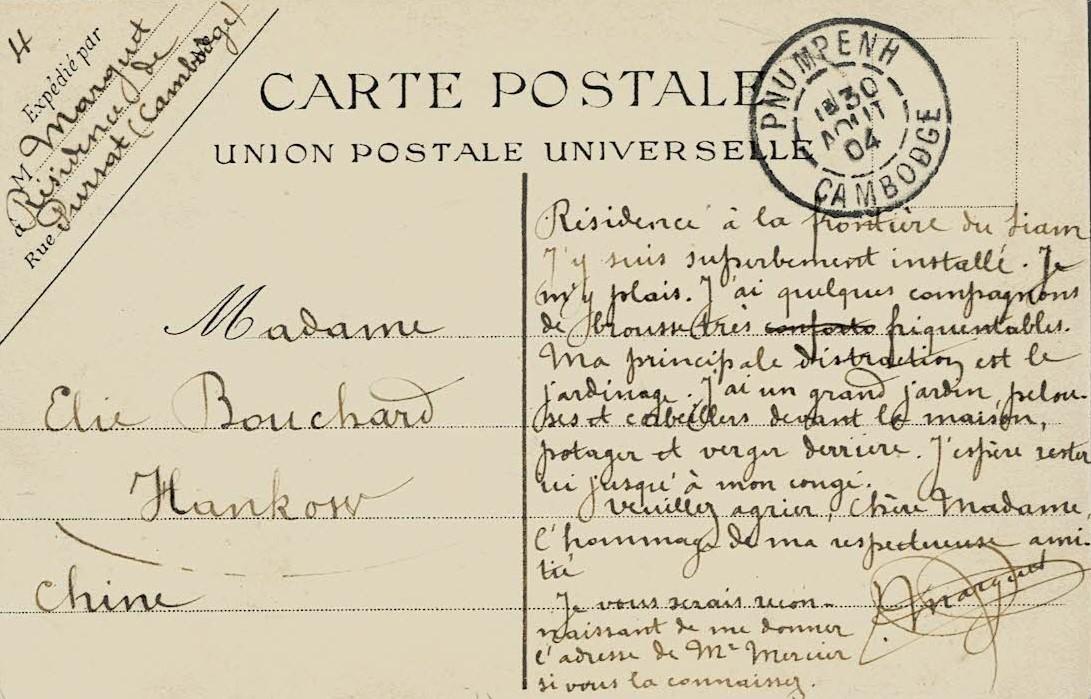 4
Expédié par
M Marquet
à Résidence de
Rue Pursat (Cambodge)
CARTE POSTALE
UNION POSTALE UNIVERSELLE
PNUMPENH
30
AOUT
04
CAMBODGE
Madame
Elie Bouchard
Hankow
Chine
Résidence à la frontière du Siam
J'y suis superbement installé. Je
m'y plais. J'ai quelques compagnons
de brousse très conforto friquentables.
Ma principale distraction est le
jardinage. J'ai un grand jardin, pelou-
ses et corbeillers devant la maison,
potager et verger derriere. J'espère rester
ici jusqu'à mon congé.
Veuillez agrier, Chère Madame,
l'hommage de ma respectueuse ami-
tié
Marquet
Je vous serais recon-
naissant de me donner
l'adresse de Mr Mercier
si vous la connaissez.